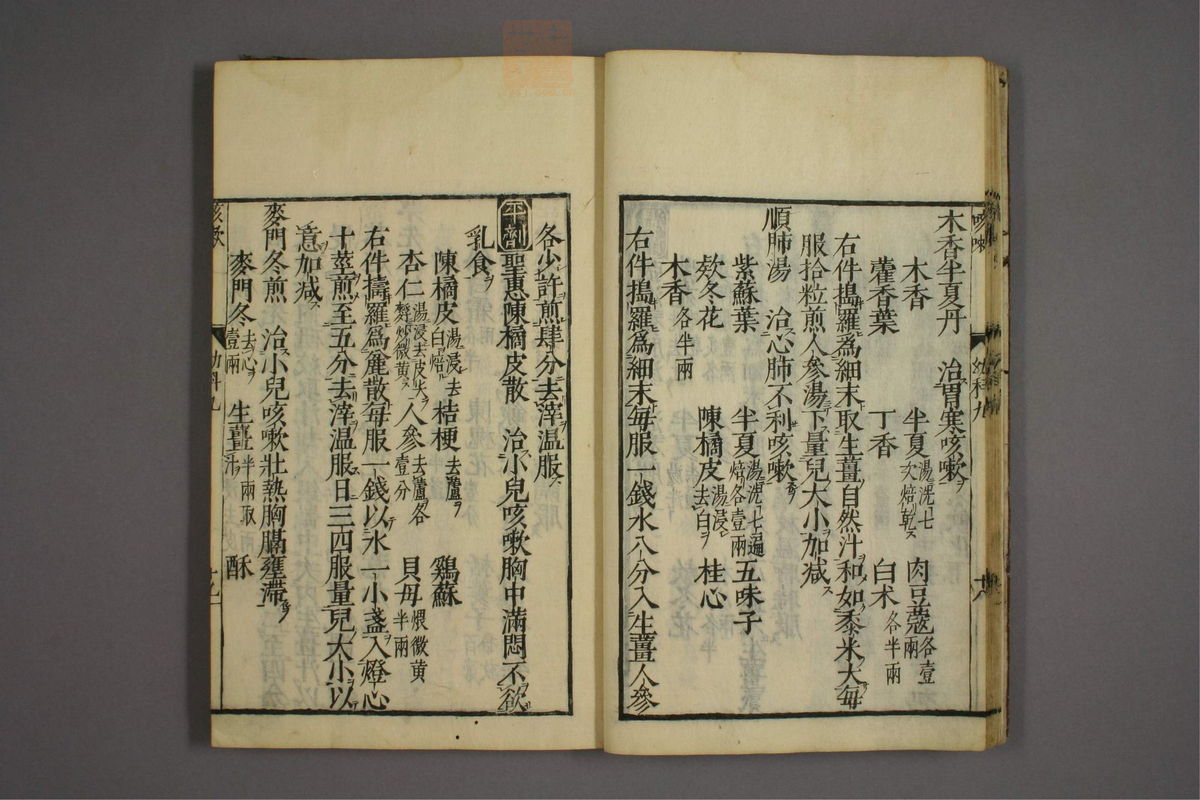 木香半夏丹　治胃寒咳嗽
木香　半夏湯洗七次焙乾　肉豆蔻各壹兩
藿香葉　丁香　白术各半兩
右件搗羅爲細末取生薑自然汁和如黍米大每
服拾粒煎人參湯下量兒大小加減
順肺湯　治心肺不利咳嗽
紫蘇葉　半夏湯洗七遍焙各壹兩　五味子
欸冬花　陳橘皮湯浸去白　桂心
木香各半兩
右件搗羅爲細末每服一錢水八分入生薑人參
各少許煎肆分去滓温服
平劑 聖惠陳橘皮散　治小兒咳嗽胸中滿悶不欲
乳食
陳橘皮湯浸去白焙　桔梗去蘆各　鷄蘇
杏仁湯浸去皮尖麩炒微黄　人參壹分　貝母煨微黄半兩
右件擣羅爲麄散每服一錢以水一小盞入燈心
十莖煎至五分去滓温服日三四服量兒大小以
意加減
麥門冬煎　治小兒咳嗽壯熱胸膈壅滯
麥門冬去心壹兩　生薑半兩取汁　酥
咳嗽
幼科九